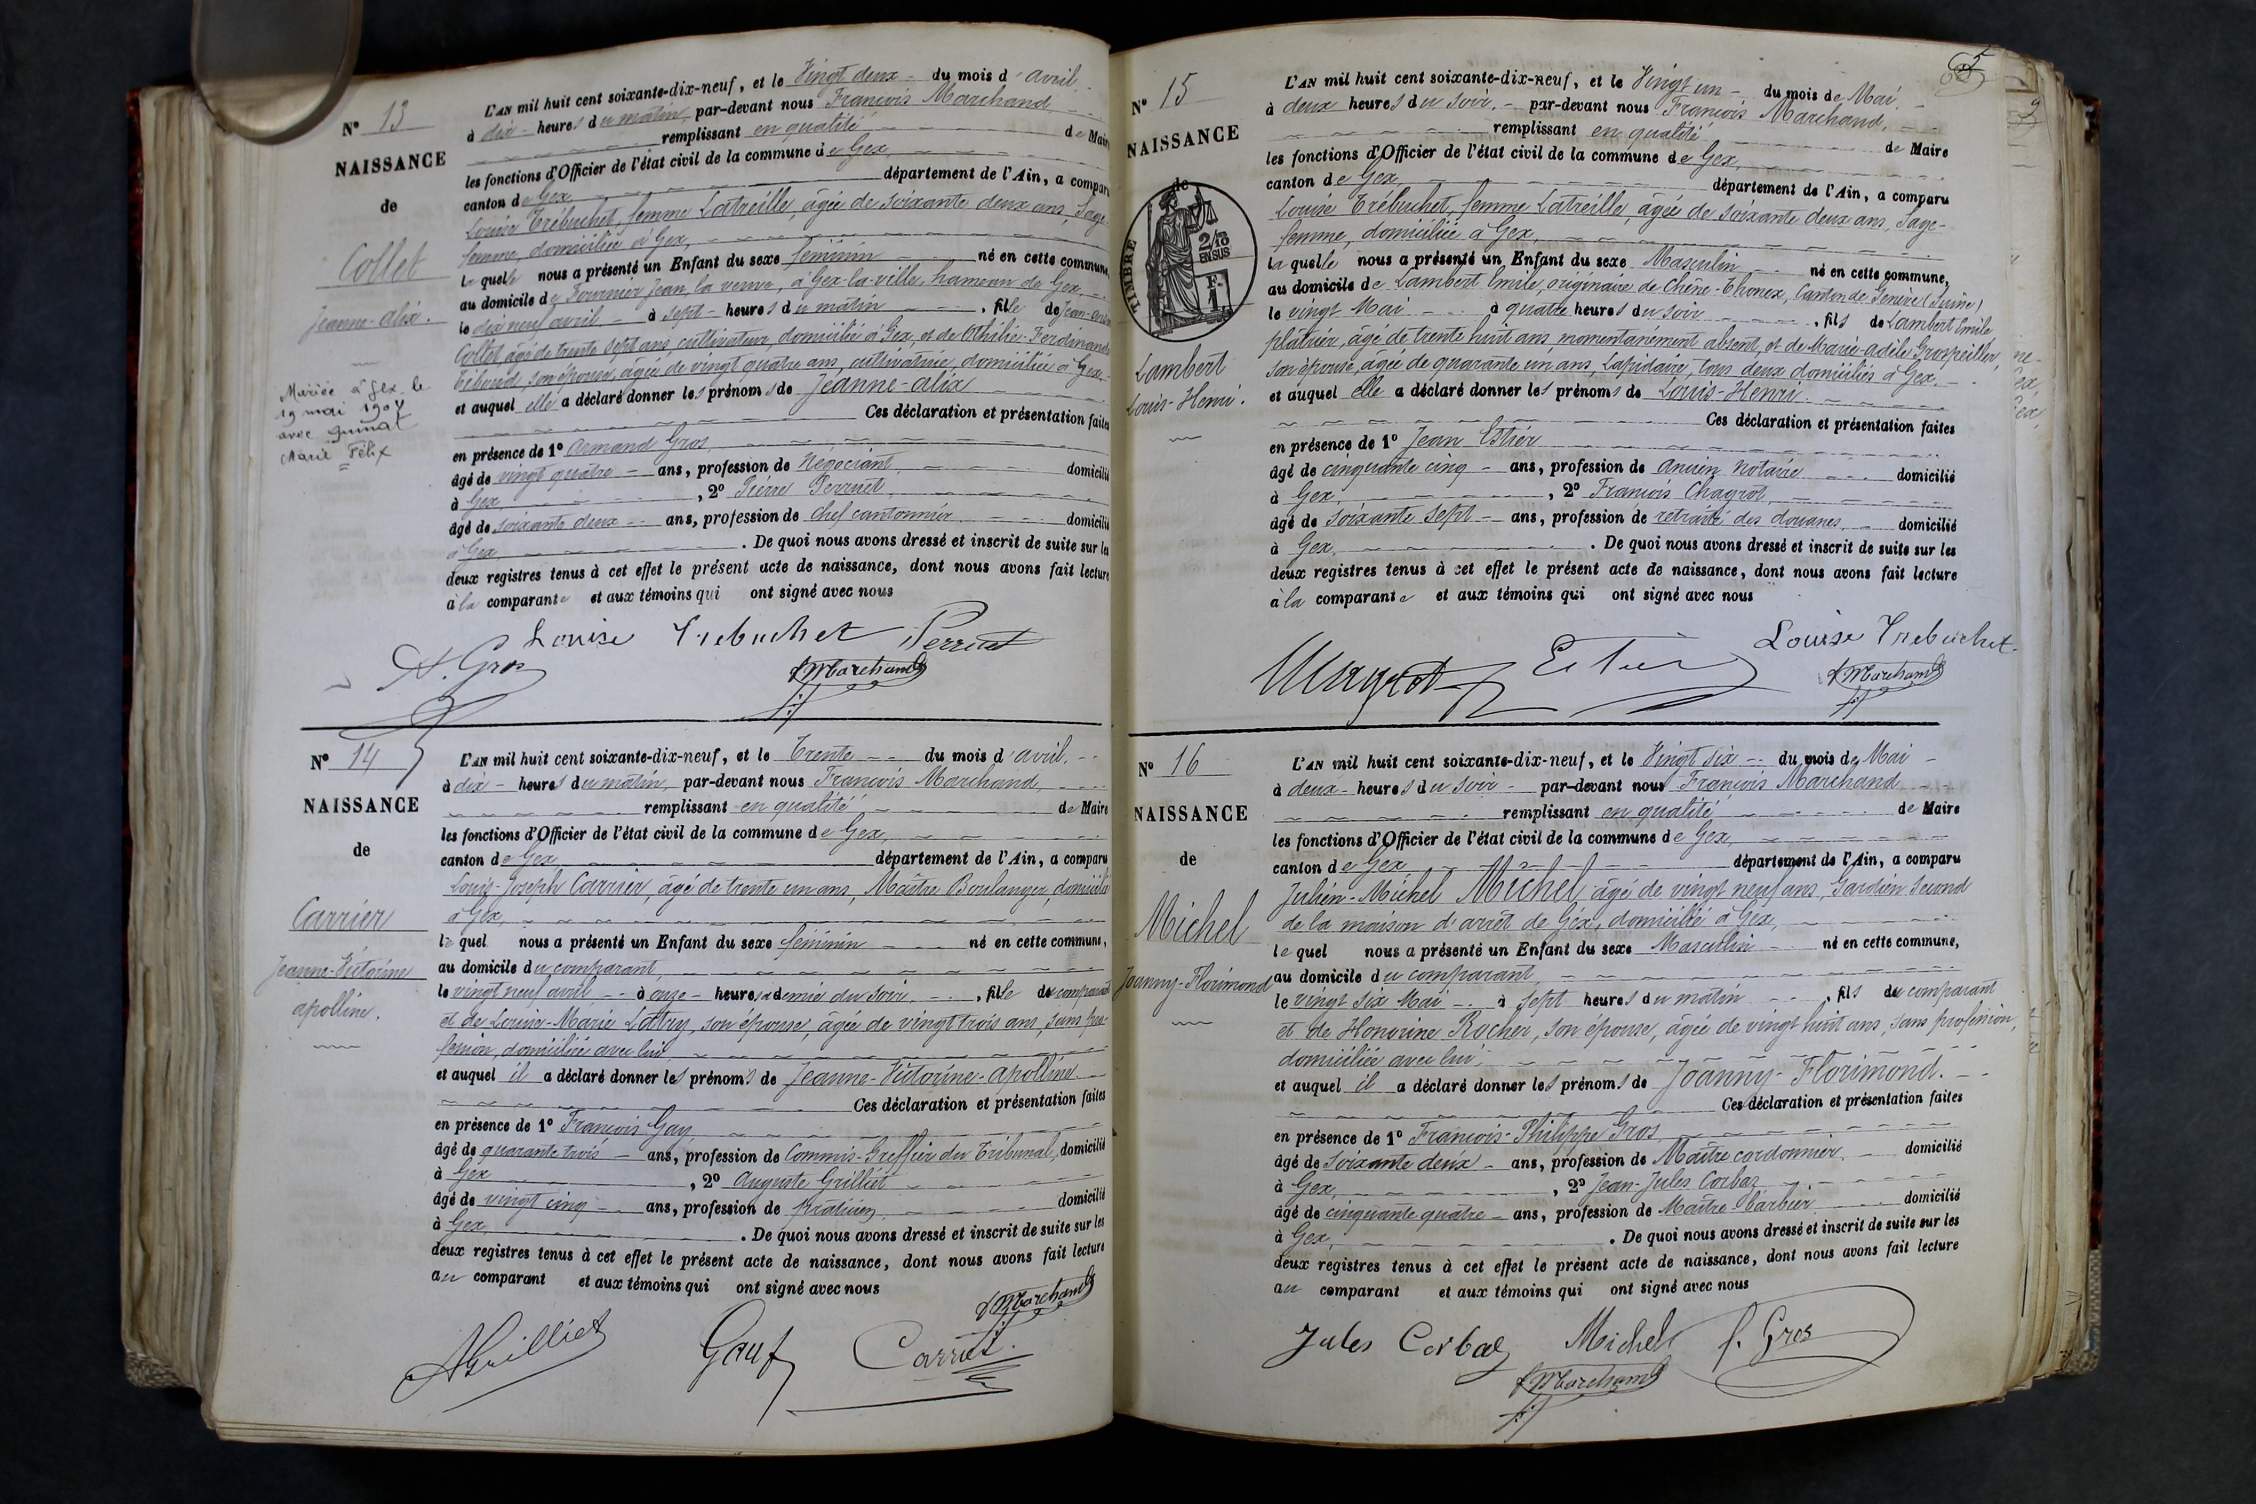 N° 13
NAISSANCE
de
Collet
Jeanne-alix.
Mariée à Gex le
19 mai 1904
avec
Marie Félix
L'AN mil huit cent soixante-dix-neuf, et le Vingt deux du mois d'avril
à dix heures du matin, par-devant nous François Marchand
remplissant en qualité de Maire
les fonctions d'Officier de l'état civil de la commune de Gex
canton de Gex département de l'Ain, a comparu
Louise Trébuchet, femme Latreille, âgée de soixante deux ans, Sage-
femme, domiciliée à Gex,
laquelle nous a présenté un Enfant du sexe féminin né en cette commune,
au domicile de Fournier Jean, la veuve, à Gex-la-ville, hameau de Gex,
le dix neuf avril à sept heures du matin, fille de Jean-
Collet, âgé de trente sept ans, cultivateur, domicilié à Gex, et de Othilie-Ferdinande
son épouse, âgée de vingt quatre ans, cultivatrice, domiciliée à Gex,
et auquel elle a déclaré donner les prénoms de Jeanne-alix
Ces déclaration et présentation faites
en présence de 1° Armand Gros
âgé de vingt quatre ans, profession de Négociant domicilié
à Gex, 2° Pierre Perruet
âgé de soixante deux ans, profession de chef cantonnier domicilié
à Gex. De quoi nous avons dressé et inscrit de suite sur les
deux registres tenus à cet effet le présent acte de naissance, dont nous avons fait lecture
à la comparante et aux témoins qui ont signé avec nous
Louise Trebuchet Perruet
A. Gros fMarchand
N° 14
NAISSANCE
de
Carrier
Jeanne-Victorine
apolline.
L'AN mil huit cent soixante-dix-neuf, et le Trente du mois d'avril
à dix heures du matin, par-devant nous François Marchand,
remplissant en qualité de Maire
les fonctions d'Officier de l'état civil de la commune de Gex,
canton de Gex département de l'Ain, a comparu
Louis-Joseph Carrier, âgé de trente un ans, Maître Boulanger, domicilié
à Gex,
lequel nous a présenté un Enfant du sexe féminin né en cette commune,
au domicile du comparant,
le vingt neuf avril à onze heures & demie du soir, fille du comparant
et de Louise-Marie Lattry, son épouse, âgée de vingt trois ans, sans pro-
fession, domiciliée avec lui
et auquel il a déclaré donner les prénoms de Jeanne-Victorine-apolline
Ces déclaration et présentation faites
en présence de 1° François Gay
âgé de quarante trois ans, profession de Commis-Greffier du Tribunal, domicilié
à Gex, 2° Auguste Grilliet
âgé de vingt cinq ans, profession de praticien domicilié
à Gex. De quoi nous avons dressé et inscrit de suite sur les
deux registres tenus à cet effet le présent acte de naissance, dont nous avons fait lecture
au comparant et aux témoins qui ont signé avec nous
fMarchand
AGrilliet Gay Carrier
5
N° 15
NAISSANCE
de
TIMBRE
2/10
EN SUS
F.
1
Lambert
Louis-Henri.
L'AN mil huit cent soixante-dix-neuf, et le Vingt un du mois de Mai
à deux heures du soir, par-devant nous François Marchand,
remplissant en qualité de Maire
les fonctions d'Officier de l'état civil de la commune de Gex,
canton de Gex, département de l'Ain, a comparu
Louise Trébuchet, femme Latreille, âgée de soixante deux ans, Sage-
femme, domiciliée à Gex,
laquelle nous a présenté un Enfant du sexe Masculin né en cette commune,
au domicile de Lambert Emile, originaire de Chêne-Thonex, Canton de Genève (Suisse)
le vingt Mai à quatre heures du soir, fils de Lambert Emile
plâtrier, âgé de trente huit ans, momentanément absent, et de Marie-adèle Grospiellier,
son épouse, âgée de quarante un ans, Lapidaire, tous deux domiciliés à Gex.
et auquel elle a déclaré donner les prénoms de Louis-Henri.
Ces déclaration et présentation faites
en présence de 1° Jean Estier
âgé de cinquante cinq ans, profession de ancien notaire domicilié
à Gex, 2° François Chagrot,
âgé de soixante sept ans, profession de retraité des douanes domicilié
à Gex. De quoi nous avons dressé et inscrit de suite sur les
deux registres tenus à cet effet le présent acte de naissance, dont nous avons fait lecture
à la comparante et aux témoins qui ont signé avec nous
Chagrot Estier Louise Trebuchet
fMarchand
N° 16
NAISSANCE
de
Michel
Joanny-Florimond
L'AN mil huit cent soixante-dix-neuf, et le Vingt six du mois de Mai
à deux heures du soir par-devant nous François Marchand
remplissant en qualité de Maire
les fonctions d'Officier de l'état civil de la commune de Gex,
canton de Gex département de l'Ain, a comparu
Julien-Michel Michel, âgé de vingt neuf ans, Gardien Second
de la maison d'arrêt de Gex, domicilié à Gex,
lequel nous a présenté un Enfant du sexe Masculin né en cette commune,
au domicile du comparant
le vingt six Mai à sept heures du matin, fils du comparant
et de Honorine Rocher, son épouse, âgée de vingt huit ans, sans profession,
domiciliée avec lui.
et auquel il a déclaré donner les prénoms de Joanny-Florimond.
Ces déclaration et présentation faites
en présence de 1° François-Philippe Gros
âgé de soixante deux ans, profession de Maître cordonnier domicilié
à Gex, 2° Jean-Jules Corbaz
âgé de cinquante quatre ans, profession de Maître barbier domicilié
à Gex. De quoi nous avons dressé et inscrit de suite sur les
deux registres tenus à cet effet le présent acte de naissance, dont nous avons fait lecture
au comparant et aux témoins qui ont signé avec nous
Jules Corbaz Michel f. Gros
fMarchand